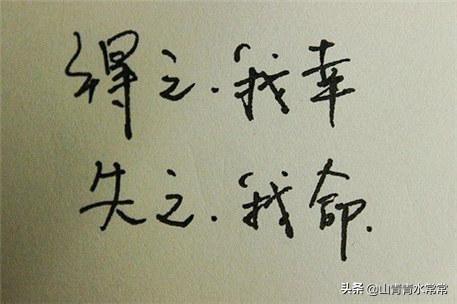 得之.我幸
失之.我命.
头条 @山青青水常常